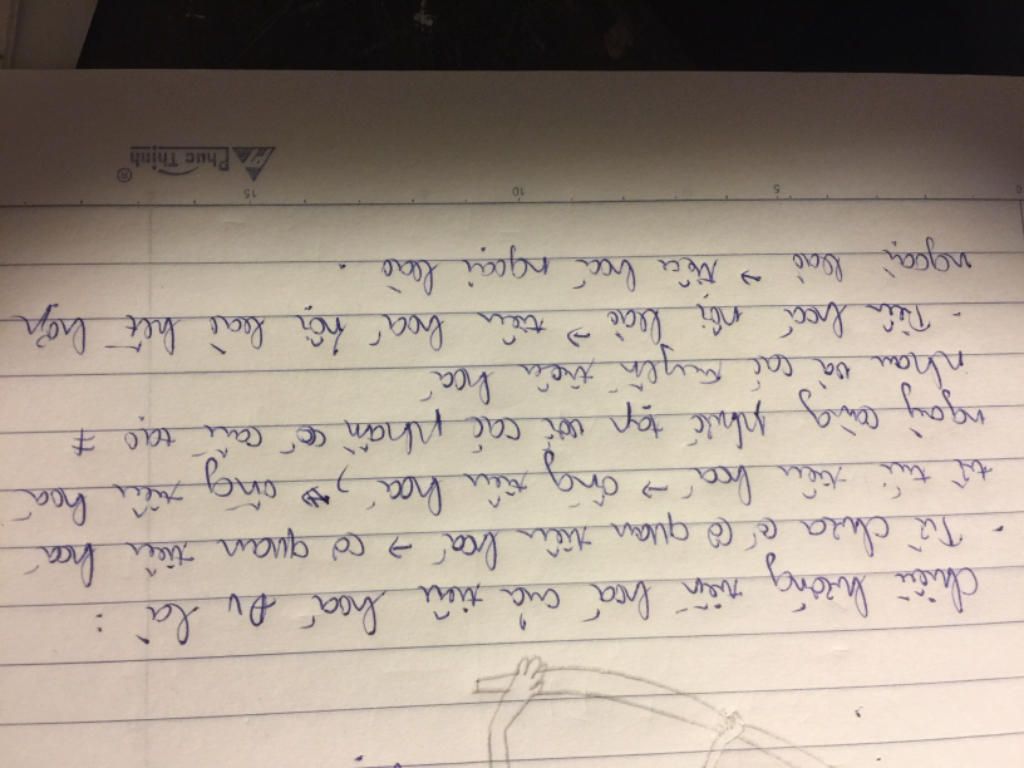 Chiều hướng tiến hoá của tiêu hoá ĐV là :
- Từ chưa có cơ quan tiêu hoá → cơ quan tiêu hoá
từ túi tiêu hoá → ống tiêu hoá, → ống tiêu hoá
ngày càng phức tạp với các phần có cấu tạo ≠
nhau và các tuyến tiêu hoá
- Tiêu hoá nội bào → tiêu hoá nội bào kết hợp
ngoại bào → tiêu hoá ngoại bào .
0 5 10 15
Phuc Thinh ®